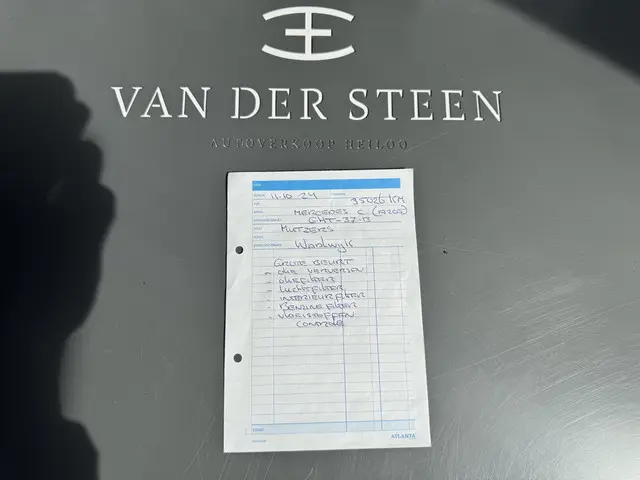 VAN DER STEEN
AUTOVERKOOP HEILOO
11-10 24
35026 KM
MERCEDES C (W205)
MUTZERS
GROTE BEURT
- OLIE VERVERSEN
- OLIEFILTER
- LUCHTFILTER
- INTERIEURFILTER
- BENZINE FILTER
- VLOEISTOFFEN
CONTROLE
ATLANTA